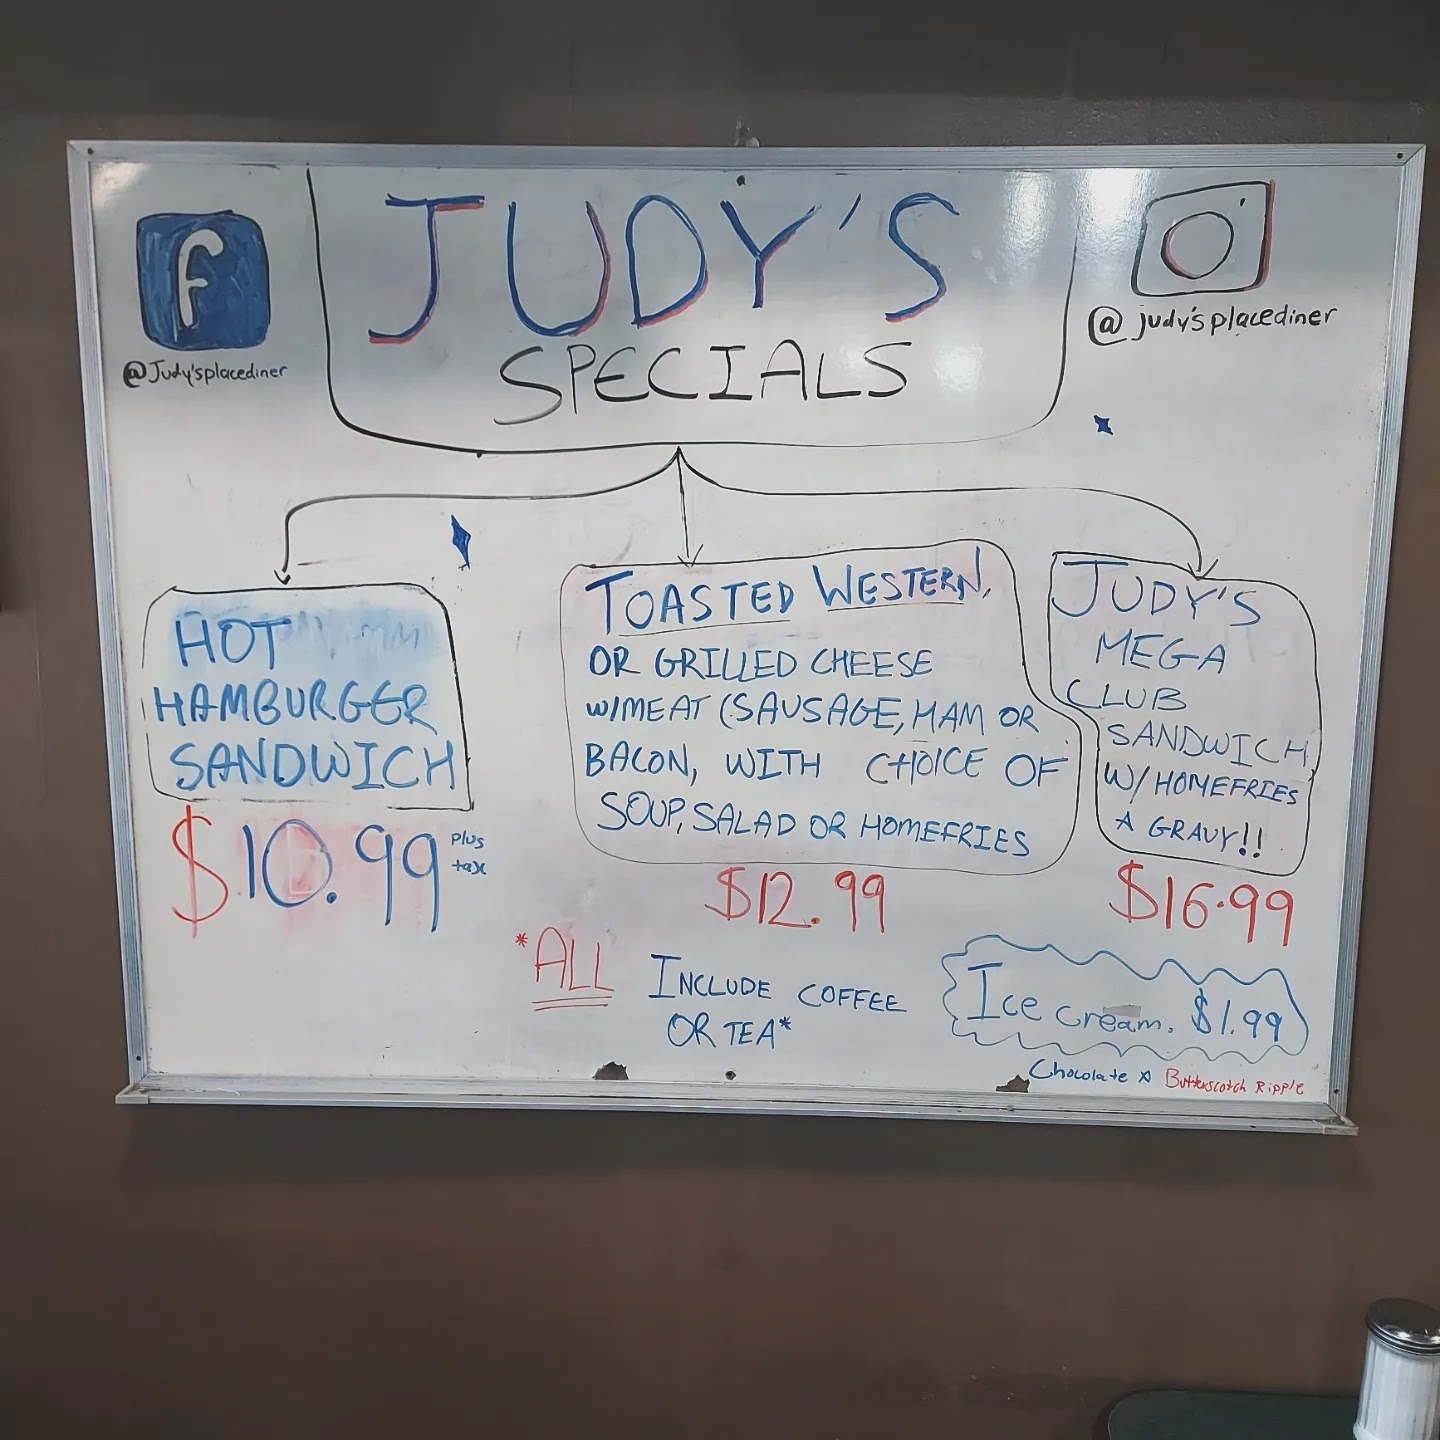 JUDY'S
SPECIALS
f
@Judy'splacediner
@judy'splacediner
HOT
HAMBURGER
SANDWICH
$10.99 plus
tax
TOASTED WESTERN,
OR GRILLED CHEESE
W/MEAT (SAUSAGE, HAM OR
BACON, WITH CHOICE OF
SOUP, SALAD OR HOMEFRIES
$12.99
JUDY'S
MEGA
CLUB
SANDWICH
W/ HOMEFRIES
& GRAVY!!
$16.99
*ALL INCLUDE COFFEE
OR TEA*
Ice cream. $1.99
Chocolate & Butterscotch Ripple